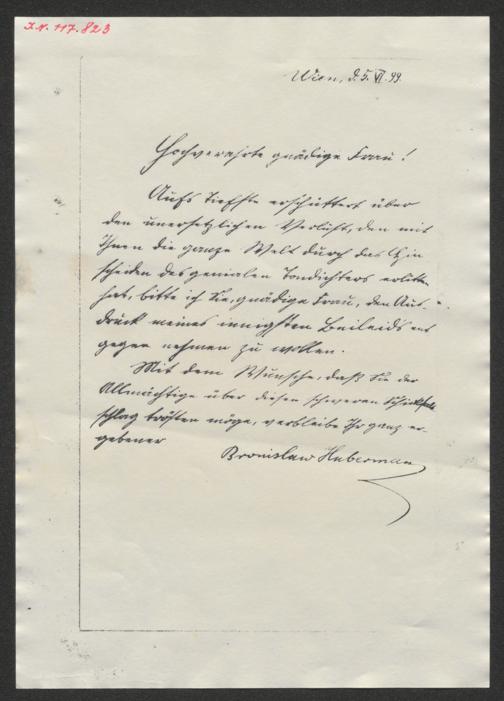 I.N. 117.823
Wien, d. 5. VI. 99.
Hochverehrte gnädige Frau!
Aufs tiefste erschüttert über
den unersetzlichen Verlust, den mit
Ihnen die ganze Welt durch das Hin
scheiden des genialen Tondichters erlitten
hat, bitte ich Sie, gnädige Frau, den Aus-
druck meines innigsten Beileids ent
gegen nehmen zu wollen.
Mit dem Wunsche, daß Sie der
Allmächtige über diesen schweren Schicksals
schlag trösten möge, verbleibe Ihr ganz er-
gebener
Bronislaw Huberman